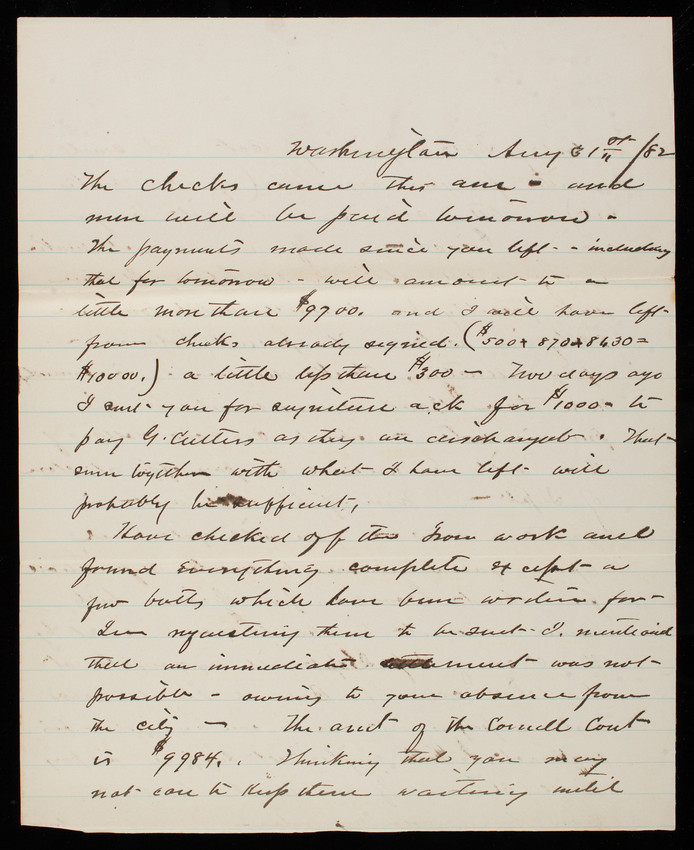 Washington Aug 31st /82
The checks came this am - and
men will be paid tomorrow -
The payments made since you left - including
that for tomorrow - will amount to a
little more than $9700. and I will have left
from checks already signed. ($500 + 870 + 8630 =
$10000.) a little less than $300 - Two days ago
I sent you for signature a ck for $1000 - to
pay G. Cutters as they are discharged. That
sum together with what I have left will
probably be sufficient.
Have checked off the Iron work and
found everything complete except a
few bolts which have been written for -
In requesting them to be sent I mentioned
that an immediate settlement was not
possible - owing to your absence from
the city - The amt of the Cornell Cont
is $9984. Thinking that you may
not care to keep them waiting until